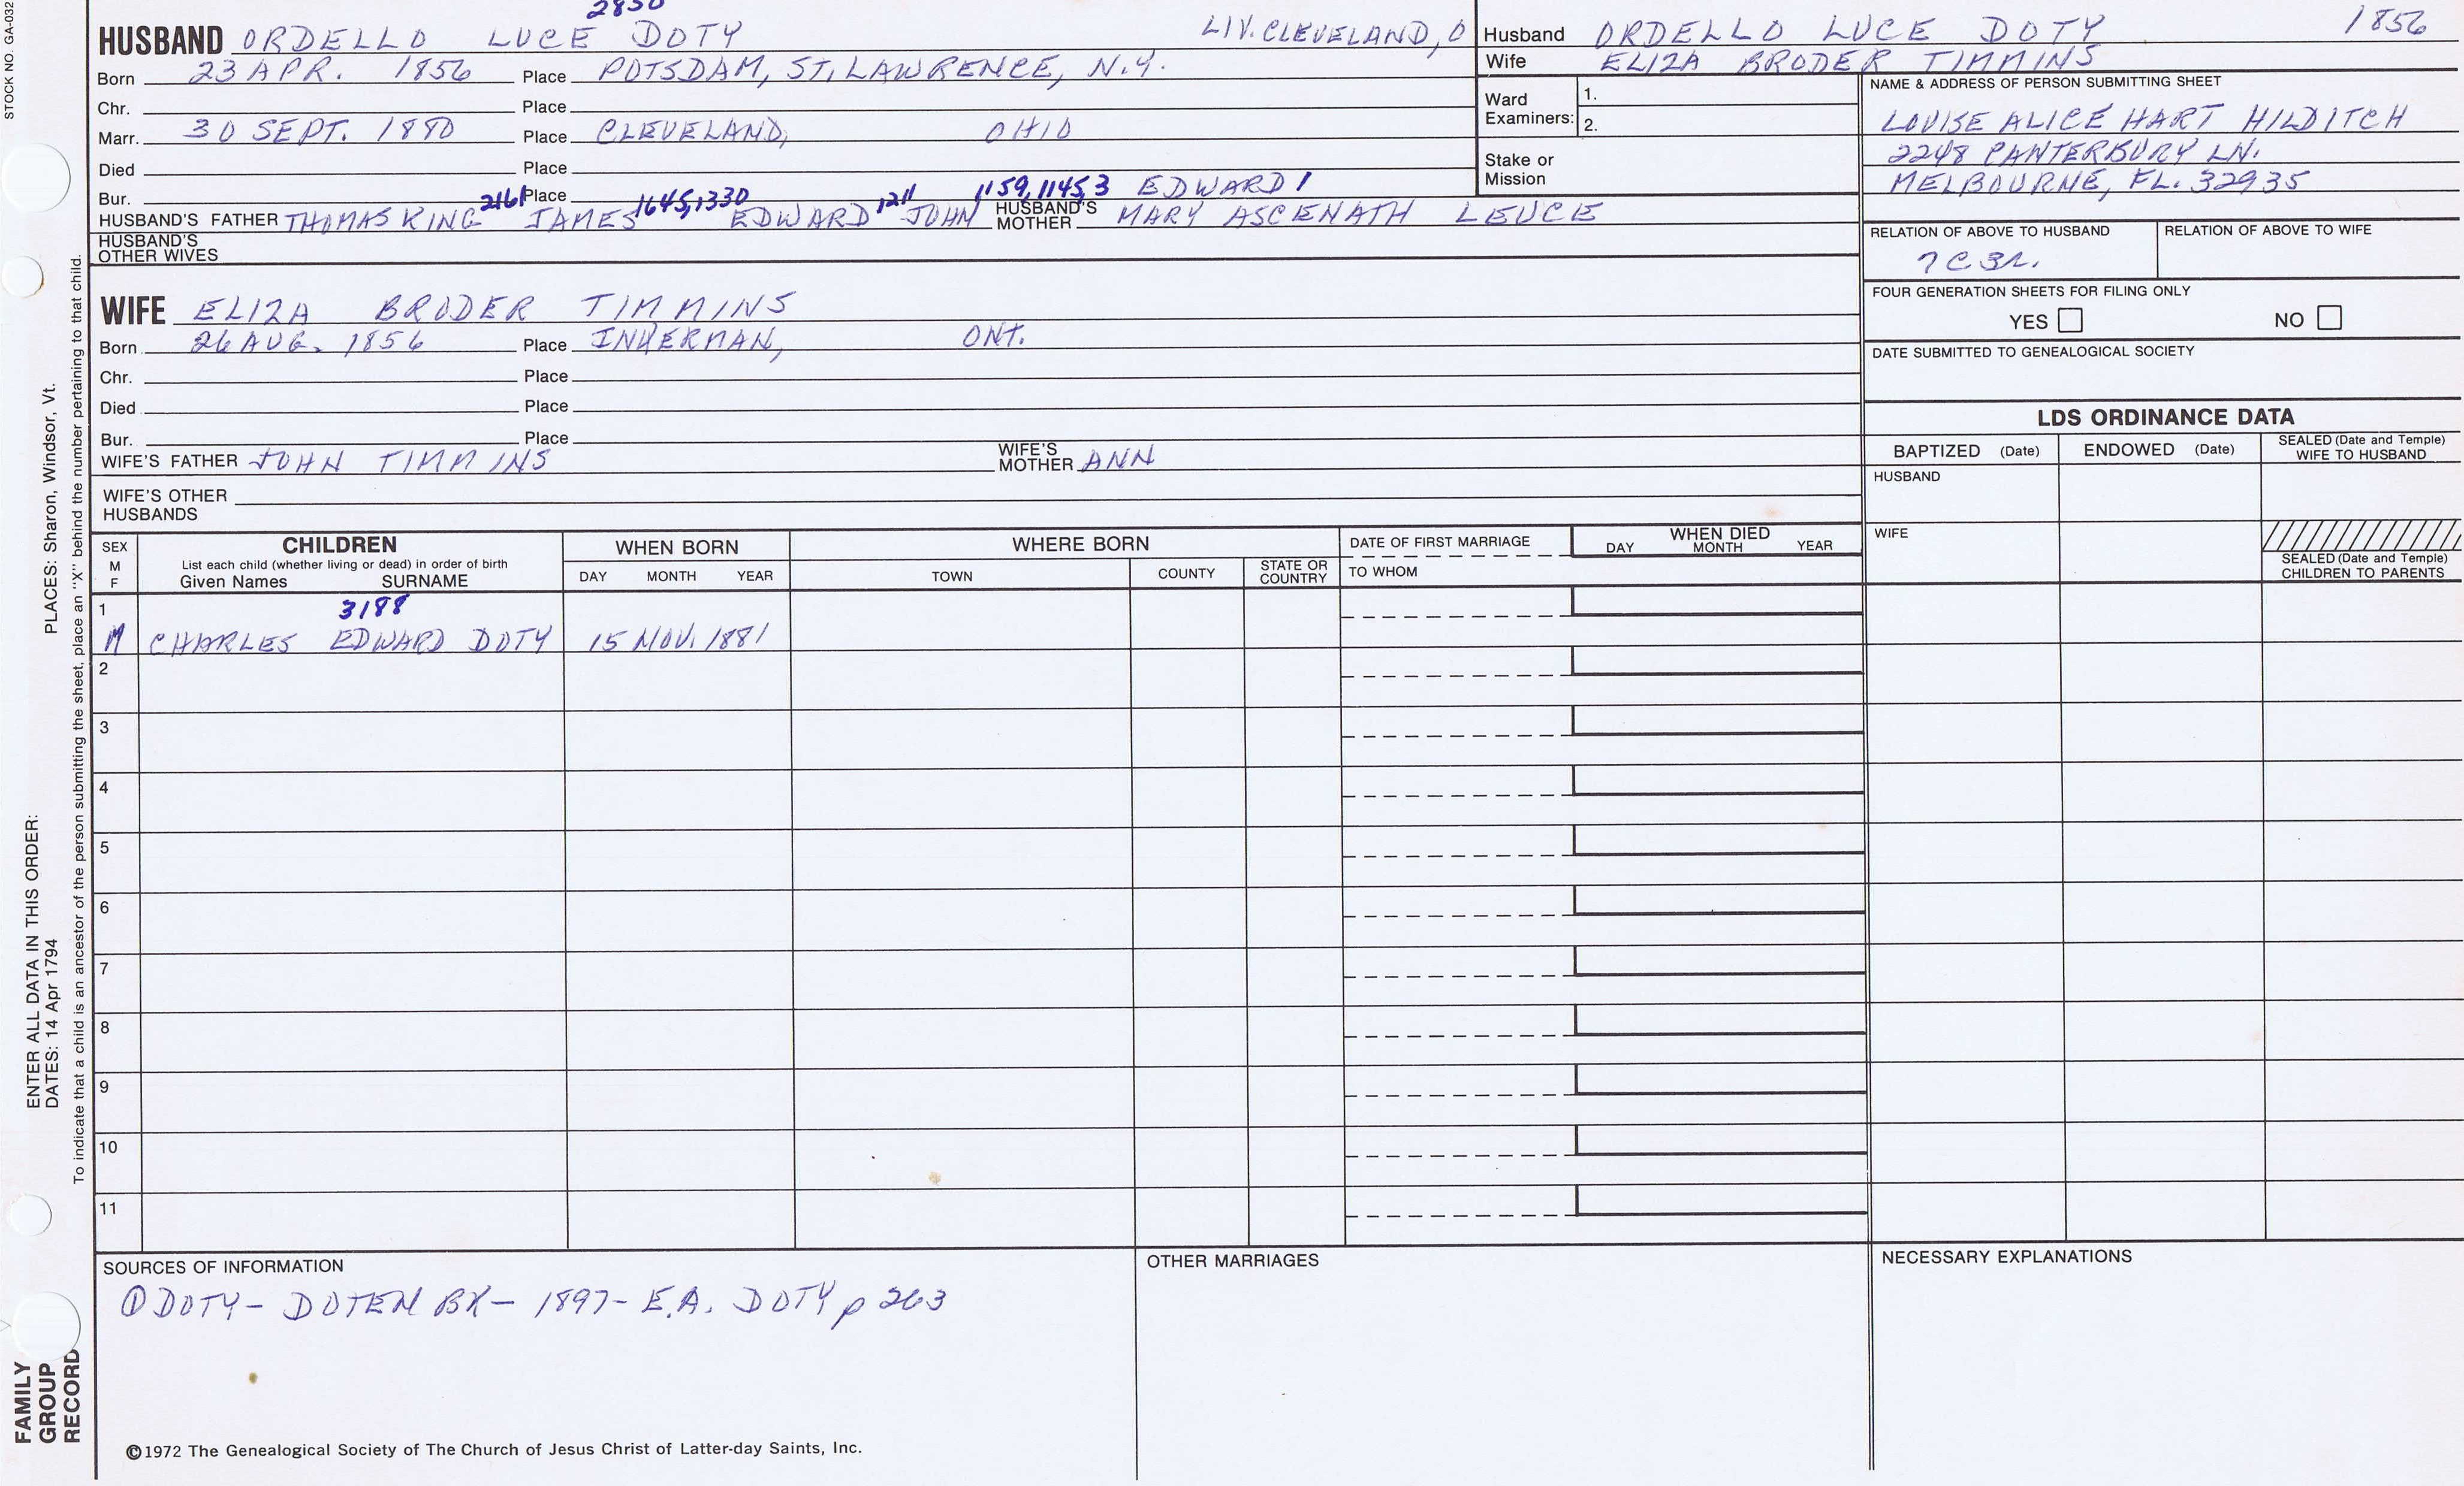 STOCK NO. GA-032
PLACES: Sharon, Windsor, Vt.
ENTER ALL DATA IN THIS ORDER:
DATES: 14 Apr 1794
To indicate that a child is an ancestor of the person submitting the sheet, place an "X" behind the number pertaining to that child.
FAMILY
GROUP
RECORD
2850
HUSBAND ORDELLO LUCE DOTY LIV. CLEVELAND, O
Born 23 APR. 1856 Place POTSDAM, ST. LAWRENCE, N.Y.
Chr. Place
Marr. 30 SEPT. 1880 Place CLEVELAND, OHIO
Died Place
Bur. Place
2161 1645,1330 1211 1159,1145,3 EDWARD 1
HUSBAND'S FATHER THOMAS KING JAMES EDWARD JOHN HUSBAND'S MOTHER MARY ASCENATH LEUCE
HUSBAND'S
OTHER WIVES
Husband ORDELLO LUCE DOTY 1856
Wife ELIZA BRODER TIMMINS
Ward
Examiners:
1.
2.
Stake or
Mission
NAME & ADDRESS OF PERSON SUBMITTING SHEET
LOUISE ALICE HART HILDITCH
2248 CANTERBURY LN.
MELBOURNE, FL. 32935
RELATION OF ABOVE TO HUSBAND
7C3R.
RELATION OF ABOVE TO WIFE
FOUR GENERATION SHEETS FOR FILING ONLY
YES NO
DATE SUBMITTED TO GENEALOGICAL SOCIETY
WIFE ELIZA BRODER TIMMINS
Born 26 AUG. 1856 Place INKERMAN, ONT.
Chr. Place
Died Place
Bur. Place
WIFE'S FATHER JOHN TIMMINS WIFE'S MOTHER ANN
WIFE'S OTHER
HUSBANDS
LDS ORDINANCE DATA
BAPTIZED (Date) ENDOWED (Date) SEALED (Date and Temple)
WIFE TO HUSBAND
HUSBAND
WIFE
SEALED (Date and Temple)
CHILDREN TO PARENTS
SEX
M
F
CHILDREN
List each child (whether living or dead) in order of birth
Given Names SURNAME
WHEN BORN
DAY MONTH YEAR
WHERE BORN
TOWN COUNTY STATE OR COUNTRY
DATE OF FIRST MARRIAGE
TO WHOM
WHEN DIED
DAY MONTH YEAR
1 3188
M CHARLES EDWARD DOTY 15 NOV. 1881
2
3
4
5
6
7
8
9
10
11
SOURCES OF INFORMATION
① DOTY - DOTEN BK - 1897 - E.A. DOTY p 263
OTHER MARRIAGES
NECESSARY EXPLANATIONS
©1972 The Genealogical Society of The Church of Jesus Christ of Latter-day Saints, Inc.